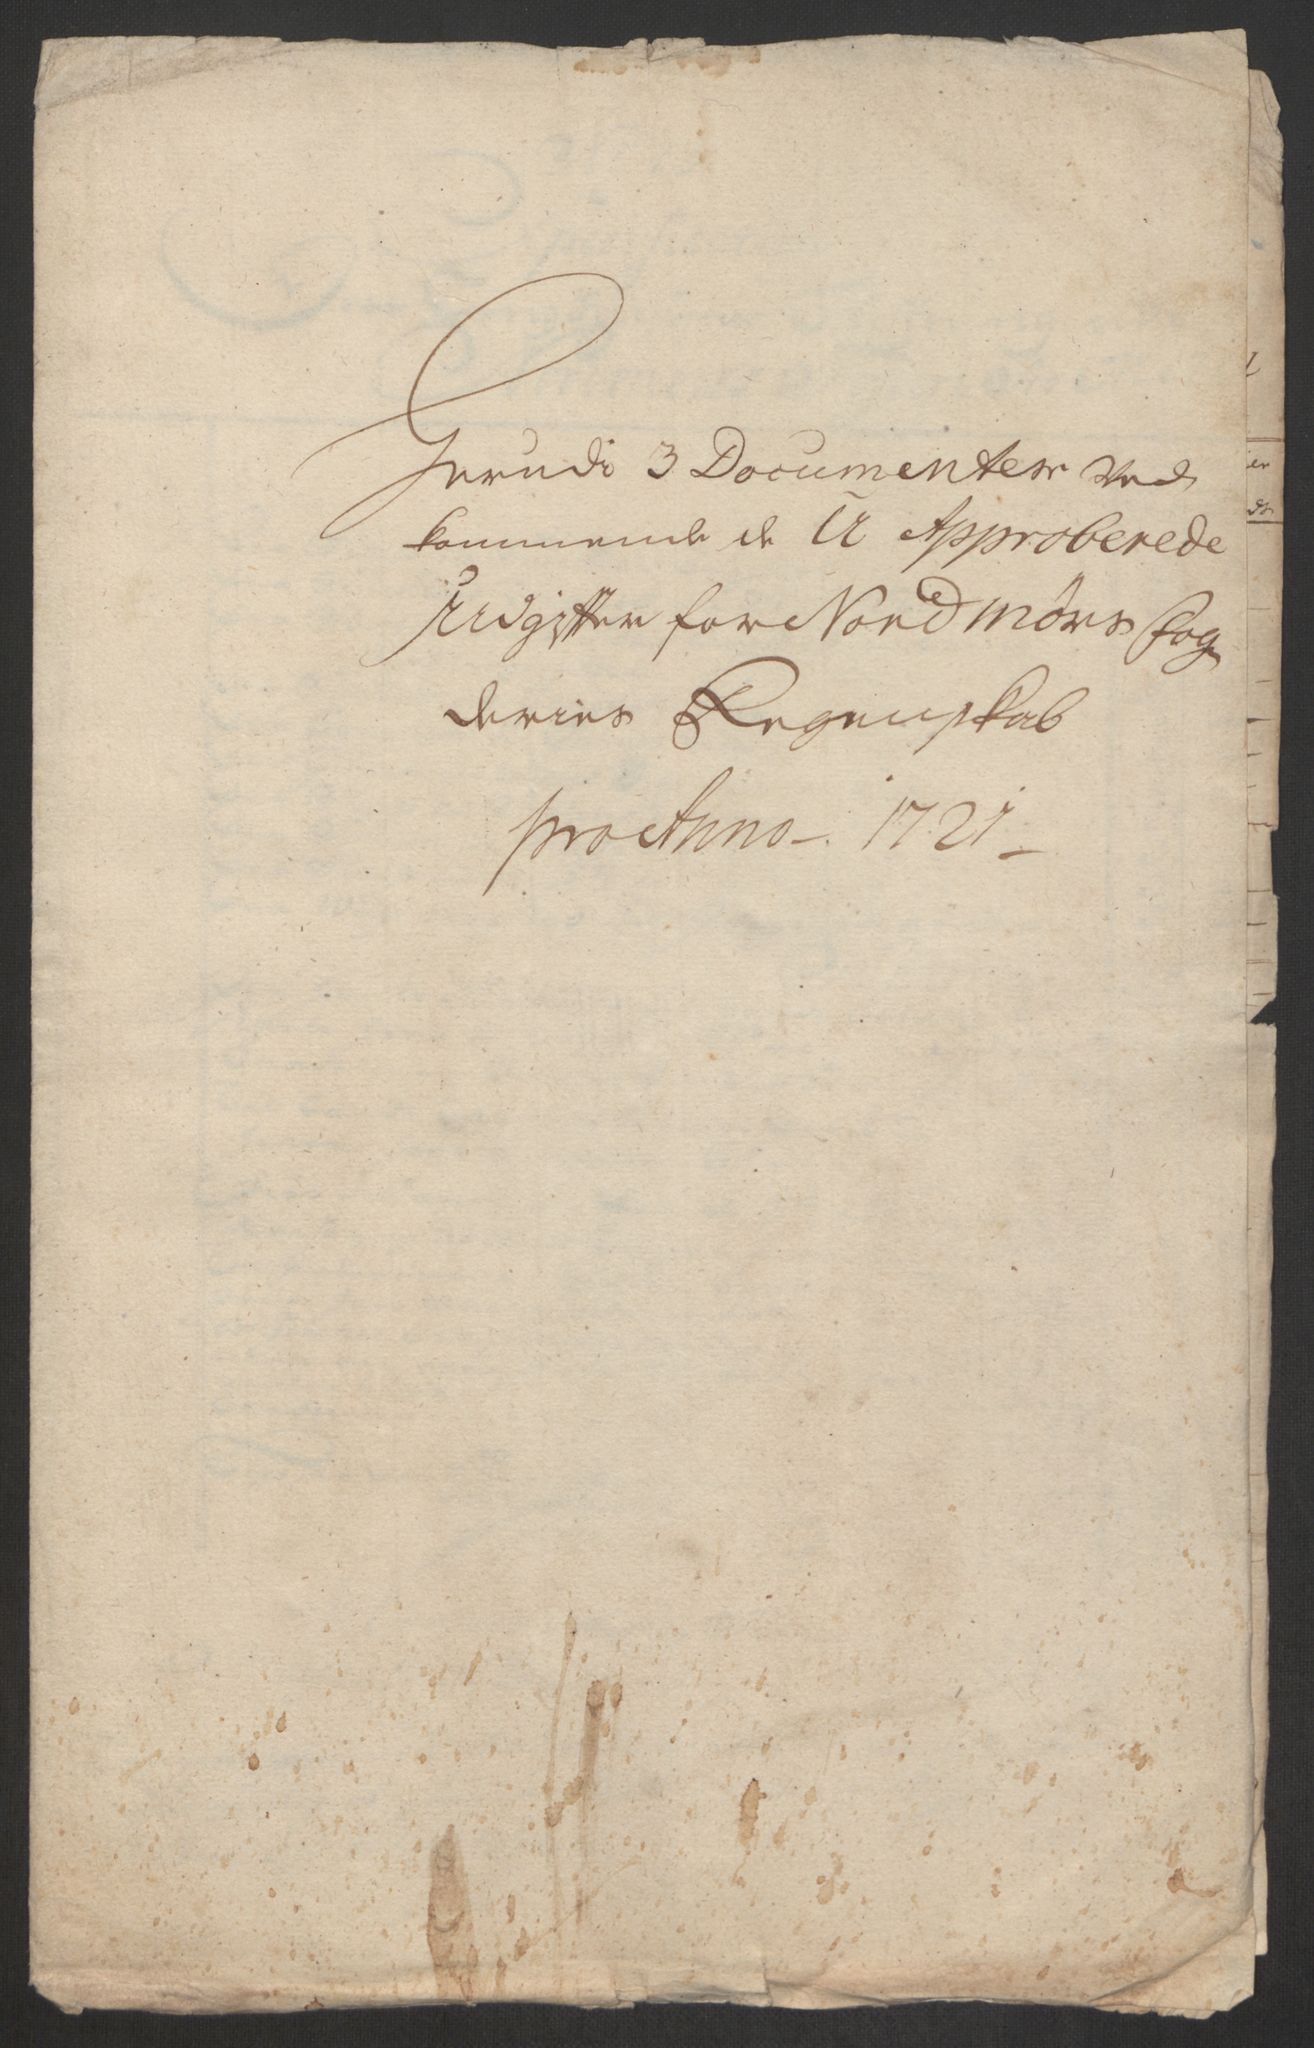 Herudi 3 Documenter Ved
kommende de U Approberede
Udgifter for Nordmörs fog
deries Regenskab
pro Anno 1721